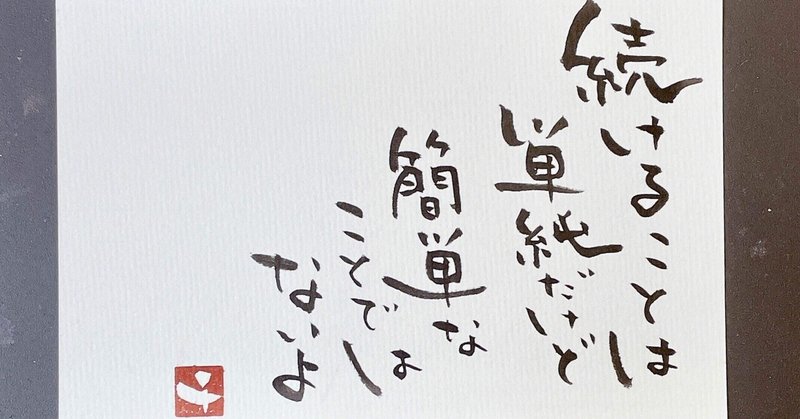 続けることは
単純だけど
簡単な
ことでは
ないよ